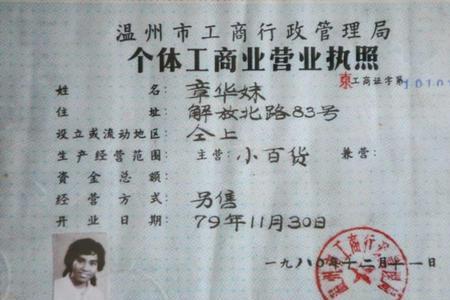 温州市工商行政管理局
个体工商业营业执照
东工商证字第10101
姓名：章华妹
住址：解放北路83号
设立或流动地区：仝上
生产经营范围：主营：小百货 兼营：
资金总额：
经营方式：另售
开业日期：79年11月30日
一九八〇年十二月十一日